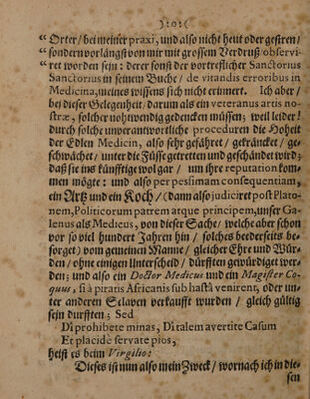 ):o:(
“Orter/ bei meiner praxi, und also nicht heut oder gestren/
“sondern vorlängst von mir mit grossem Verdruß/ observi-
“ret worden sein: derer sonst der vortreflicher Sanctorius
Sanctorius in seinem Buche/ de vitandis erroribus in
Medicina, meines wissens sich nicht erinnert. Ich aber/
bei dieser Gelegenheit/ darum als ein veteranus artis no-
stræ, solcher nohtwendig gedencken müssen; weil leider!
durch solche unverantwortliche proceduren die Hoheit
der Edlen Medicin, also sehr gefähret/ gekräncket/ ge-
schwächet/ unter die Füsse getretten und geschändet wird;
daß sie ins künfftige wol gar/ um ihre reputation kom-
men mögte: und also per pessimam consequentiam,
ein Artz und ein Koch/ (dann also judiciret post Plato-
nem, Politicorum patrem atque principem, unser Ga-
lenus als Medicus, von dieser Sache/ welche aber schon
vor so viel hundert Jahren hin/ solches beederseits be-
sorget) vom gemeinen Manne/ gleicher Ehre und Wür-
den/ ohne einigen Unterscheid/ dürfften gewürdiget wer-
den; und also ein Doctor Medicus und ein Magister Co-
quus, si à piratis Africanis sub hastâ venirent, oder un-
ter anderen Sclaven verkaufft wurden/ gleich gültig
sein durfften; Sed
Dî prohibete minas, Dî talem avertite Casum
Et placidè servate pios,
heist es beim Virgilio:
Dieses ist nun also mein Zweck/ wornach ich in die-
sen